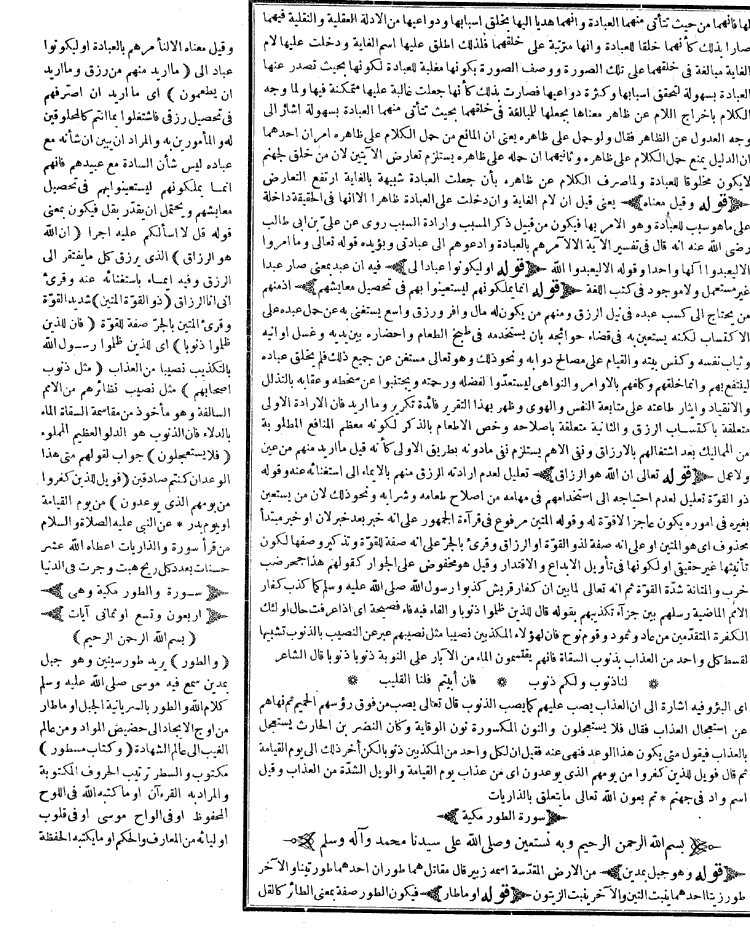 لها فانهما من حيث تتأتى منهما العبادة وانهما هديا اليها بخلق اسبابها ودواعيها من الادلة العقلية والنقلية فيهما
صارا بذلك كأنهما خلقا للعبادة وانها مترتبة على خلقهما فلذلك اطلق عليها اسم الغاية ودخلت عليها لام
الغاية مبالغة فى خلقهما على تلك الصورة ووصف الصورة بكونها مغلبة للعبادة لكونها بحيث تصدر عنها
العبادة بسهولة لتحقق اسبابها وكثرة دواعيها فصارت بذلك كأنها جعلت غالبة عليها متمكنة فيها ولما وجه
الكلام باخراج اللام عن ظاهر معناها بجعلها للمبالغة فى خلقهما بحيث تتأتى منهما العبادة بسهولة اشار الى
وجه العدول عن الظاهر فقال ولو حمل على ظاهره يعنى ان المانع من حمل الكلام على ظاهره امران احدهما
ان الدليل يمنع حمل الكلام على ظاهره وثانيهما ان حمله على ظاهره يستلزم تعارض الآيتين لان من خلق لجهنم
لايكون مخلوقا للعبادة ولما صرف الكلام عن ظاهره بأن جعلت العبادة شبيهة بالغاية ارتفع التعارض
قوله وقيل معناه يعنى قيل ان لام الغاية وان دخلت على العبادة ظاهرا الاانها فى الحقيقة داخلة
على ماهو سبب للعبادة وهو الامر بها فيكون من قبيل ذكر المسبب وارادة السبب روى عن على بن ابى طالب
رضى الله عنه انه قال فى تفسير الآية الالآمرهم بالعبادة وادعوهم الى عبادتى ويؤيده قوله تعالى وما امروا
الا ليعبدوا آلها واحدا وقوله الا ليعبدوا الله قوله او ليكونوا عبادا لى فيه ان عبد بمعنى صار عبدا
غير مستعمل ولاموجود فى كتب اللغة قوله انما يملكونهم ليستعينوا بهم فى تحصيل معايشهم اذ منهم
من يحتاج الى كسب عبده فى نيل الرزق ومنهم من يكون له مال وافر ورزق واسع يستغنى به عن حمل عبده على
الاكتساب لكنه يستعين به فى قضاء حوائجه بان يستخدمه فى طبخ الطعام واحضاره بين يديه وغسل اوانيه
وثياب نفسه وكنس بيته والقيام على مصالح دوابه ونحو ذلك وهو تعالى مستغن عن جميع ذلك فلم يخلق عباده
لينتفع بهم وانما خلقهم وكلفهم بالاوامر والنواهى ليستعدوا لفضله ورحمته ويجتنبوا عن سخطه وعقابه بالتذلل
والانقياد وايثار طاعته على متابعة النفس والهوى وظهر بهذا التقرير فائدة تكرير وما اريد فان الارادة الاولى
متعلقة باكتساب الرزق والثانية متعلقة باصلاحه وخص الاطعام بالذكر لكونه معظم المنافع المطلوبة
من المماليك بعد اشتغالهم بالارزاق ونفى الاهم يستلزم نفى مادونه بطريق الاولى كأنه قيل ما اريد منهم من عين
ولاعمل قوله تعالى ان الله هو الرزاق تعليل لعدم ارادته الرزق منهم بالايماء الى استغنائه عنه وقوله
ذو القوة تعليل لعدم احتياجه الى استخدامهم فى مهامه من اصلاح طعامه وشرابه ونحو ذلك لان من يستعين
بغيره فى اموره يكون عاجزا لاقوة له وقوله المتين مرفوع فى قرآءة الجمهور على انه خبر بعد خبر لان او خبر مبتدأ
محذوف اى هو المتين او على انه صفة لذو القوة او الرزاق وقرئ بالجر على انه صفة للقوة وتذكير وصفها لكون
تأنيثها غير حقيقى او لكونها فى تأويل الايداع والاقتدار وقيل هو مخفوض على الجوار كقولهم هذا جحر ضب
خرب والمتانة شدة القوة ثم انه تعالى لما بين ان كفار قريش كذبوا رسول الله صلى الله عليه وسلم كما كذب كفار
الامم الماضية رسلهم بين جزآء تكذيبهم بقوله قال للذين ظلموا ذنوبا والفاء فيه فاء فصيحة اى اذا عرفت حال اولئك
الكفرة المتقدمين من عاد وثمود وقوم نوح فان لهؤلاء المكذبين نصيبا مثل نصيبهم عبر عن النصيب بالذنوب تشبيها
لقسط كل واحد من العذاب بذنوب السقاة فانهم يقتسمون الماء من الآبار على النوبة ذنوبا ذنوبا قال الشاعر
لنا ذنوب ولكم ذنوب * فان أبيتم فلنا القليب
اى البئر وفيه اشارة الى ان العذاب يصب عليهم كما يصب الذنوب قال تعالى يصب من فوق رؤسهم الحميم ثم نهاهم
عن استعجال العذاب فقال فلا يستعجلون والنون المكسورة نون الوقاية وكان النضر بن الحارث يستعجل
بالعذاب فيقول متى يكون هذا الوعد فنهى عنه فقيل ان لكل واحد من المكذبين ذنوبا لكن أخر ذلك الى يوم القيامة
ثم قال فويل للذين كفروا من يومهم الذى يوعدون اى من عذاب يوم القيامة والويل الشدة من العذاب وقيل
اسم واد فى جهنم * تم بعون الله تعالى مايتعلق بالذاريات
سورة الطور مكية
بسم الله الرحمن الرحيم وبه نستعين وصلى الله على سيدنا محمد وآله وسلم
قوله وهو جبل بمدين من الارض المقدسة اسمه زبير قال مقاتل هما طوران احدهما طور تينا والآخر
طور زيتا احدهما ينبت التين والآخر ينبت الزيتون قوله او ماطار فيكون الطور صفة بمعنى الطائر كالقل
وقيل معناه الالنأمرهم بالعبادة او ليكونوا
عباد الى (ما اريد منهم من رزق وما اريد
ان يطعمون) اى ما اريد ان اصرفهم
فى تحصيل رزقى فاشتغلوا بما انتم كالمخلوقين
له والمأمورين به والمراد ان يبين ان شأنه مع
عباده ليس شأن السادة مع عبيدهم فانهم
انما يملكونهم ليستعينوا بهم فى تحصيل
معايشهم ويحتمل ان يقدر بقل فيكون بمعنى
قوله قل لا اسألكم عليه اجرا (ان الله
هو الرزاق) الذى يرزق كل مايفتقر الى
الرزق وفيه ايماء باستغنائه عنه وقرئ
انى انا الرزاق (ذو القوة المتين) شديد القوة
وقرئ المتين بالجر صفة للقوة (فان للذين
ظلموا ذنوبا) اى للذين ظلموا رسول الله
بالتكذيب نصيبا من العذاب (مثل ذنوب
اصحابهم) مثل نصيب نظائرهم من الامم
السالفة وهو مأخوذ من مقاسمة السقاة الماء
بالدلاء فان الذنوب هو الدلو العظيم المملوء
(فلا يستعجلون) جواب لقولهم متى هذا
الوعد ان كنتم صادقين (فويل للذين كفروا
من يومهم الذى يوعدون) من يوم القيامة
او يوم بدر * عن النبى عليه الصلاة والسلام
من قرأ سورة والذاريات اعطاه الله عشر
حسنات بعدد كل ريح هبت وجرت فى الدنيا
سورة والطور مكية وهى
اربعون وتسع او ثمانى آيات
(بسم الله الرحمن الرحيم)
(والطور) يريد طور سينين وهو جبل
بمدين سمع فيه موسى صلى الله عليه وسلم
كلام الله والطور بالسريانية الجبل او ماطار
من اوج الايجاد الى حضيض المواد ومن عالم
الغيب الى عالم الشهادة (وكتاب مسطور)
مكتوب والسطر ترتيب الحروف المكتوبة
والمراد به القرءآن او ماكتبه الله فى اللوح
المحفوظ او فى الواح موسى او فى قلوب
اوليائه من المعارف والحكم او مايكتبه الحفظة